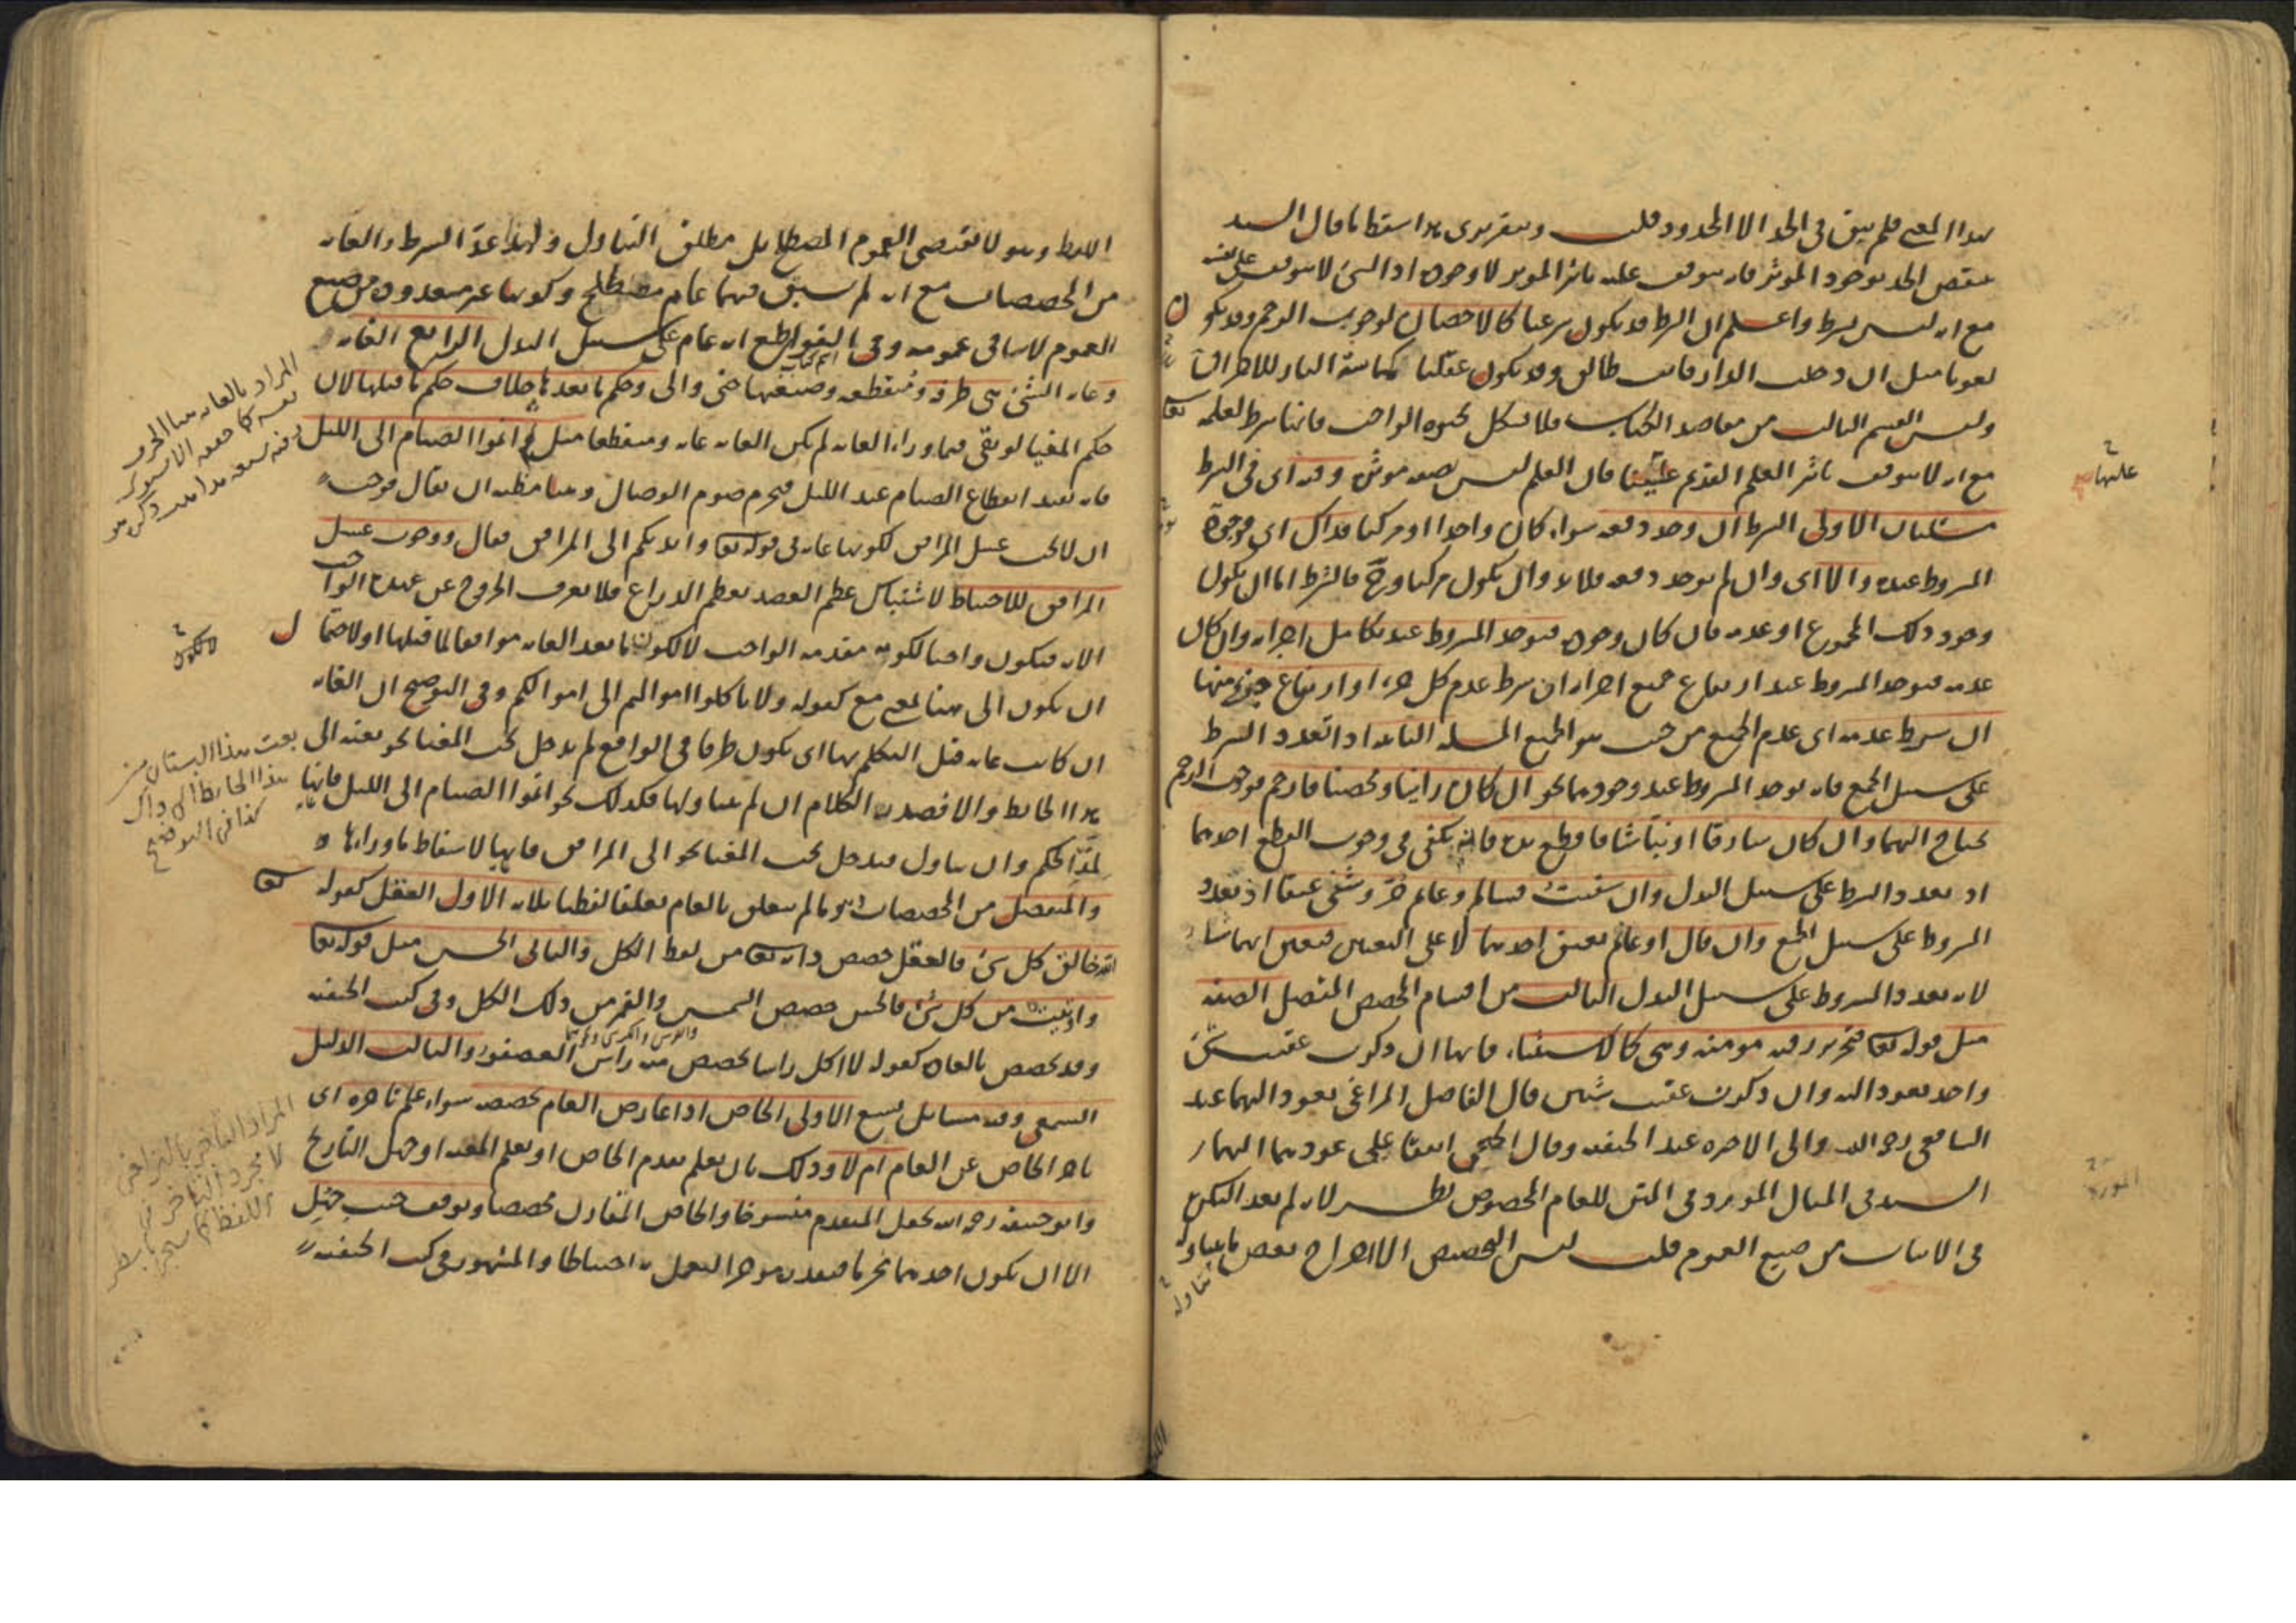 بهذا المعنى فلم يبق في الحد الا المحدود قلت وبتقريري هذا سقط ما قال السيد
ينقض الحد بوجود المؤثر فانه يتوقف عليه تاثير المؤثر لا وجوده اذ الشئ لا يتوقف على نفسه
مع انه ليس بشرط واعلم ان الشرط قد يكون شرعيا كالاحصان لوجوب الرجم وقد يكون
لغويا مثل ان دخلت الدار فانت طالق وقد يكون عقليا كمماسة النار للاحراق
وليس القسم الثالث من مقاصد الكتاب فلا يشكل بحيوة الواجب فانها شرط لعلمه تعا
مع انه لا يتوقف تاثير العلم القديم عليها فان العلم ليس بصفة مؤثرة وفيه اى في الشرط
مسئلتان الاولى الشرط ان وجد دفعة سواء كان واحدا او مركبا فذاك اى فوجود
المشروط عنده والا اى وان لم يوجد دفعة فلا بد وان يكون مركبا وح فالشرط اما ان يكون
وجود ذلك المجموع او عدمه فان كان وجوده فيوجد المشروط عند تكامل اجزائه وان كان
عدمه فيوجد المشروط عند ارتفاع جميع اجزائه ان شرط عدم كل جزء او ارتفاع جزء منها
ان شرط عدمه اى عدم الجميع من حيث هو الجميع المسئلة الثانية اذا تعدد الشرط
على سبيل الجمع فانه يوجد المشروط عند وجودهما نحو ان كان زانيا ومحصنا فارجم فوجوب الرجم
يحتاج اليهما وان كان سارقا او نباشا فاقطع يده فانه يكفى في وجوب القطع احدهما
اذ تعدد الشرط على سبيل البدل وان شفيت فسالم وغانم حر وشفى عتقا اذ تعدد
المشروط على سبيل الجمع وان قال او غانم فيعتق احدهما لا على التعيين فيعين ايهما شاء
لانه تعدد المشروط على سبيل البدل الثالث من اقسام المخصص المتصل الصفة
مثل قوله تعا فتحرير رقبة مؤمنة وهى كالاستثناء فانها ان ذكرت عقيب شئ
واحد تعود اليه وان ذكرت عقيب شيئين قال الفاضل المراغى تعود اليهما عند
الشافعى رحمه الله والى الاخيرة عند الحنفية وقال الخنجى اتفقا على عودهما اليهما
السيد في المثال المورد في المتن للعام المخصوص نظر لانه لم يعد النكرة
في الاثبات من صيغ العموم قلت ليس التخصيص الا اخراج بعض ما يتناوله
عليها
المورد
يتناوله
اللفظ وهو لا يقتضى العموم المصطلح بل مطلق التناول ولهذا عد الشرط والغاية
من المخصصات مع انه لم يسبق فيهما عام مصطلح وكونها غير معدودة من صيغ
العموم لا ينافى عمومه وفى القواطع انه عام على سبيل البدل الرابع الغاية
وغاية الشئ هى طرفه ومنقطعه وصيغتها حتى والى وحكم ما بعدها خلاف حكم ما قبلها لان
حكم المغيا لو بقى فيما وراء الغاية لم يكن الغاية غاية ومنقطعا مثل ثم اتموا الصيام الى الليل
فانه يفيد انقطاع الصيام عند الليل فيحرم صوم الوصال وهنا مظنة ان يقال فوجب
ان لا يجب غسل المرافق لكونها غاية في قوله تعا وايديكم الى المرافق فقال ووجوب غسل
المرافق للاحتياط لاشتباك عظم العضد بعظم الذراع فلا يعرف الخروج عن عهدة الواجب
الا به فيكون واجبا لكونه مقدمة الواجب لا لكون ما بعد الغاية موافقا لما قبلها او لاحتمال
ان يكون الى ههنا بمعنى مع كقوله ولا تاكلوا اموالهم الى اموالكم وفى التوضيح ان الغاية
ان كانت غاية قبل التكلم بها اى يكون طرفا في الواقع لم يدخل تحت المغيا نحو بعته الى
هذا الحائط والا فصدر الكلام ان لم يتناولها فكذلك نحو اتموا الصيام الى الليل فانها
لمد الحكم وان يتناول فيدخل تحت المغيا نحو الى المرافق فانها لاسقاط ما وراءها
والمنفصل من المخصصات وهو ما لم يتعلق بالعام تعلقا لفظيا ثلاثة الاول العقل كقوله تعا
الله خالق كل شئ فالعقل خصص ذاته تعا من لفظ الكل والثانى الحس مثل قوله تعا
واوتيت من كل شئ فالحس خصص الشمس والقمر من ذلك الكل وفى كتب الحنفية
والعرش والكرسى
وقد يخصص بالعادة كقوله لا اكل راسا يخصص منه راس العصفور والثالث الدليل
السمعى وفيه مسائل تسع الاولى الخاص اذا عارض العام يخصصه سواء علم تاخره اى
تاخر الخاص عن العام ام لا وذلك بان يعلم تقدم الخاص او يعلم المعية او جهل التاريخ
وابو حنيفة رحمه الله يجعل المتقدم منسوخا والخاص المقارن مخصصا وتوقف حيث جهل
الا ان يكون احدهما محرما فيقدم مؤخر العمل به احتياطا والمشهور في كتب الحنفية
المراد بالغاية هنا الحرف
لا لكون
بعت هذا البستان من
هذا الحائط الى ذاك
كذا في التوضيح
المراد التاخر بالتراخى
لا مجرد التاخر في
اللفظ كما سيجئ